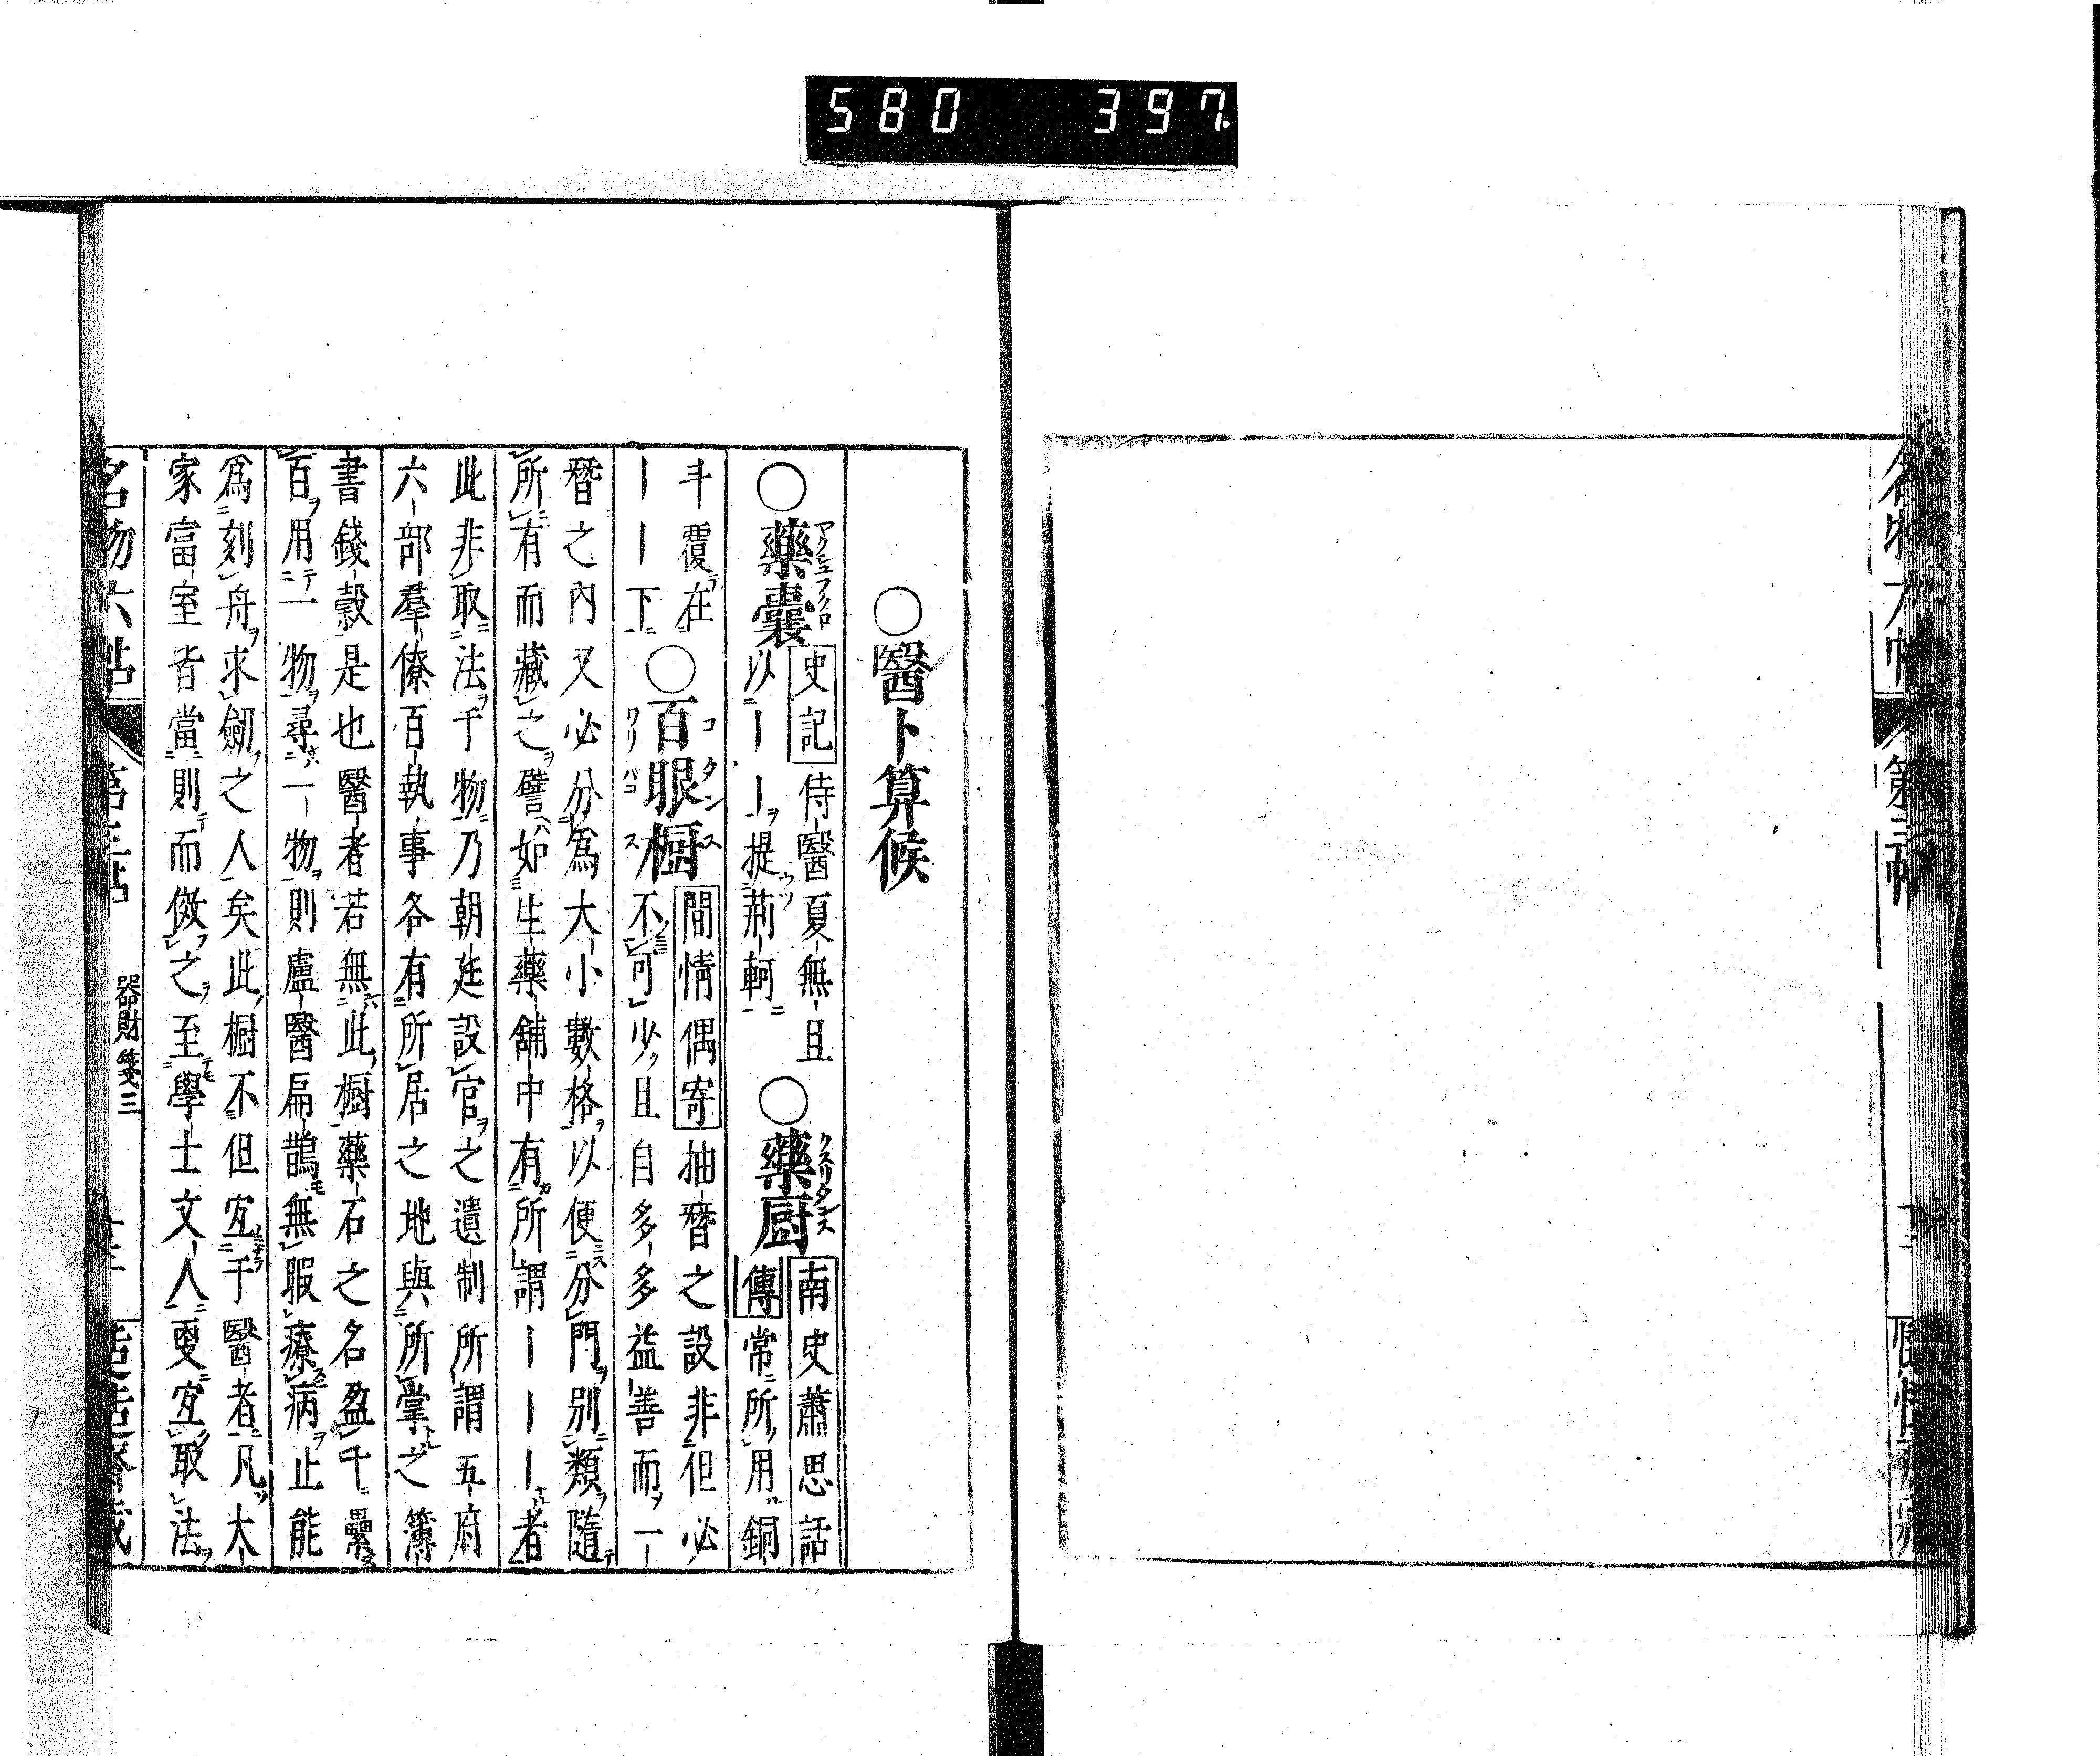 580 397
第三帖
○醫卜算候
○藥囊 史記 侍醫夏無且
以｜｜提荊軻
○藥厨 南史蕭思話
傳 常所用銅
斗覆在
｜｜下
○百眼橱 閒情偶寄 抽替之設非但必
不可少且自多多益善而一
替之內又必分為大小數格以便分門別類隨
所有而藏之譬如生藥舖中有所謂｜｜｜者
此非取法于物乃朝廷設官之遺制所謂五府
六部羣僚百執事各有所居之地與所掌之簿
書錢穀是也醫者若無此橱藥石之名盈千累
百用一物尋一物則盧醫扁鵲無暇療病止能
為刻舟求劒之人矣此橱不但宜于醫者凡大
家富室皆當則而倣之至學士文人更宜取法
名物六帖 第三帖 器財箋三